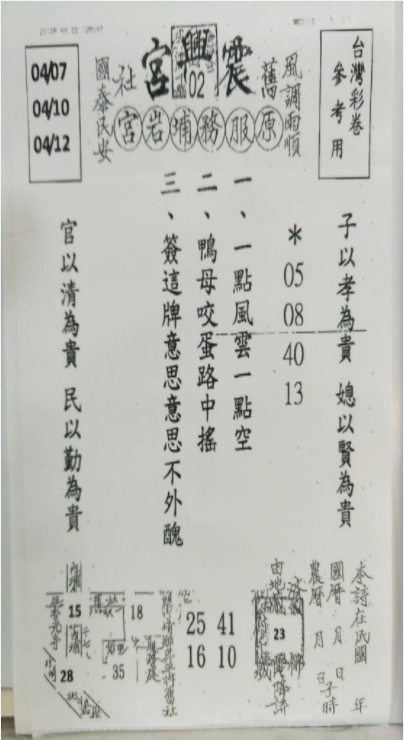 台灣彩卷
參考用
風調雨順
震興宮
102
舊社
國泰民安
原服務埔岩宮
04/07
04/10
04/12
子以孝為貴 媳以賢為貴
*
05
08
40
13
一、一點風雲一點空
二、鴨母咬蛋路中搖
三、簽這牌意思意思不外醜
官以清為貴 民以勤為貴
本詩在民國 年
國曆 月 日
農曆 月 日子時
23
41
10
25
16
18
35
15
28